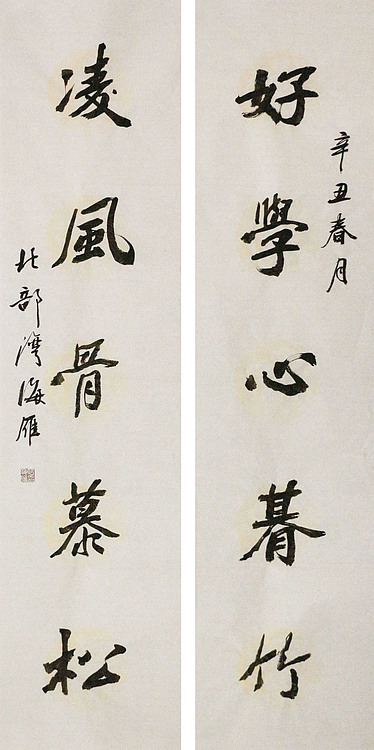 辛丑春月
好學心朞竹
凌風骨慕松
北部灣海雁